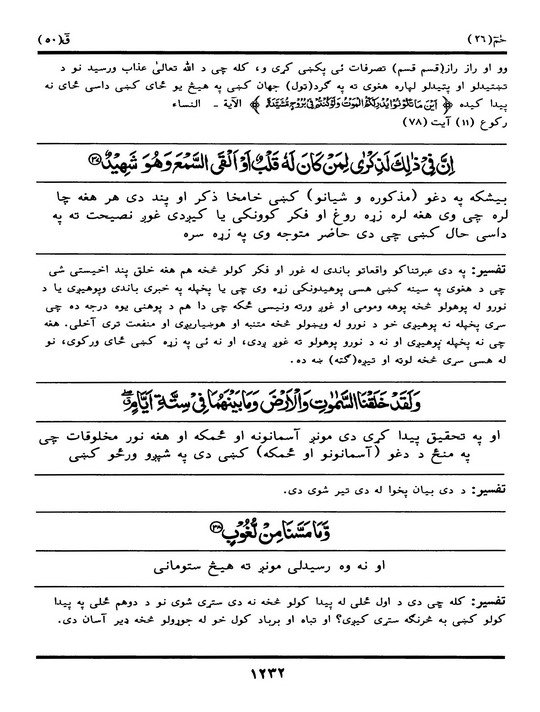 حٰمٓ (٢٦) قٓ (٥٠)
وو او راز راز(قسم قسم) تصرفات ئی پکښی کړی و، کله چی د الله تعالیٰ عذاب ورسید نو د
تښتیدلو او پتیدلو لپاره هغوی ته په ګرد(تول) جهان کښی په هیڅ یو ځای کښی داسی ځای نه
پیدا کیده ﴿ اَیْنَ مَا تَکُوْنُوْا یُدْرِکْکُّمُ الْمَوْتُ وَلَوْ کُنْتُمْ فِیْ بُرُوْجٍ مُّشَیَّدَةٍ ﴾ الآیة - النساء
رکوع (١١) آیت (٧٨)
اِنَّ فِیْ ذٰلِكَ لَذِکْرٰی لِمَنْ کَانَ لَهٗ قَلْبٌ اَوْ اَلْقَی السَّمْعَ وَهُوَ شَهِیْدٌ ﴿٣٧﴾
بیشکه په دغو (مذکوره و شیانو) کښی خامخا ذکر او پند دی هر هغه چا
لره چی وی هغه لره زړه روغ او فکر کوونکی یا کیږدی غوږ نصیحت ته په
داسی حال کښی چی دی حاضر متوجه وی په زړه سره
تفسیر: په دی عبرتناکو واقعاتو باندی له غور او فکر کولو څخه هم هغه خلق پند اخیستی شی
چی د هغوی په سینه کښی هسی پوهیدونکی زړه وی چی یا پخپله په خبری باندی وپوهیږی یا د
نورو له پوهولو څخه پوهه ومومی او غوږ ورته ونیسی ځکه چی دا هم د پوهنی یوه درجه ده چی
سړی پخپله نه پوهیږی خو د نورو له ویښولو څخه متنبه او هوښیاریږی او منفعت تری آخلی. هغه
چی نه پخپله پوهیږی او نه د نورو پوهولو ته غوږ ږدی، او نه ئی په زړه کښی ځای ورکوی، نو
له هسی سړی څخه لوته او تیږه(ګته) ښه ده.
وَلَقَدْ خَلَقْنَا السَّمٰوٰتِ وَالْاَرْضَ وَمَا بَیْنَهُمَا فِیْ سِتَّةِ اَیَّامٍ
او په تحقیق پیدا کړی دی مونږ آسمانونه او ځمکه او هغه نور مخلوقات چی
په منځ د دغو (آسمانونو او ځمکه) کښی دی په شپږو ورځو کښی
تفسیر: د دی بیان پخوا له دی تیر شوی دی.
وَّمَا مَسَّنَا مِنْ لُّغُوْبٍ ﴿٣٨﴾
او نه وه رسیدلی مونږ ته هیڅ ستومانی
تفسیر: کله چی دی د اول ځلی له پیدا کولو څخه نه دی ستړی شوی نو د دوهم ځلی په پیدا
کولو کښی به څرنګه ستړی کیږی؟ او تباه او برباد کول خو له جوړولو څخه ډیر آسان دی.
١٢٣٢